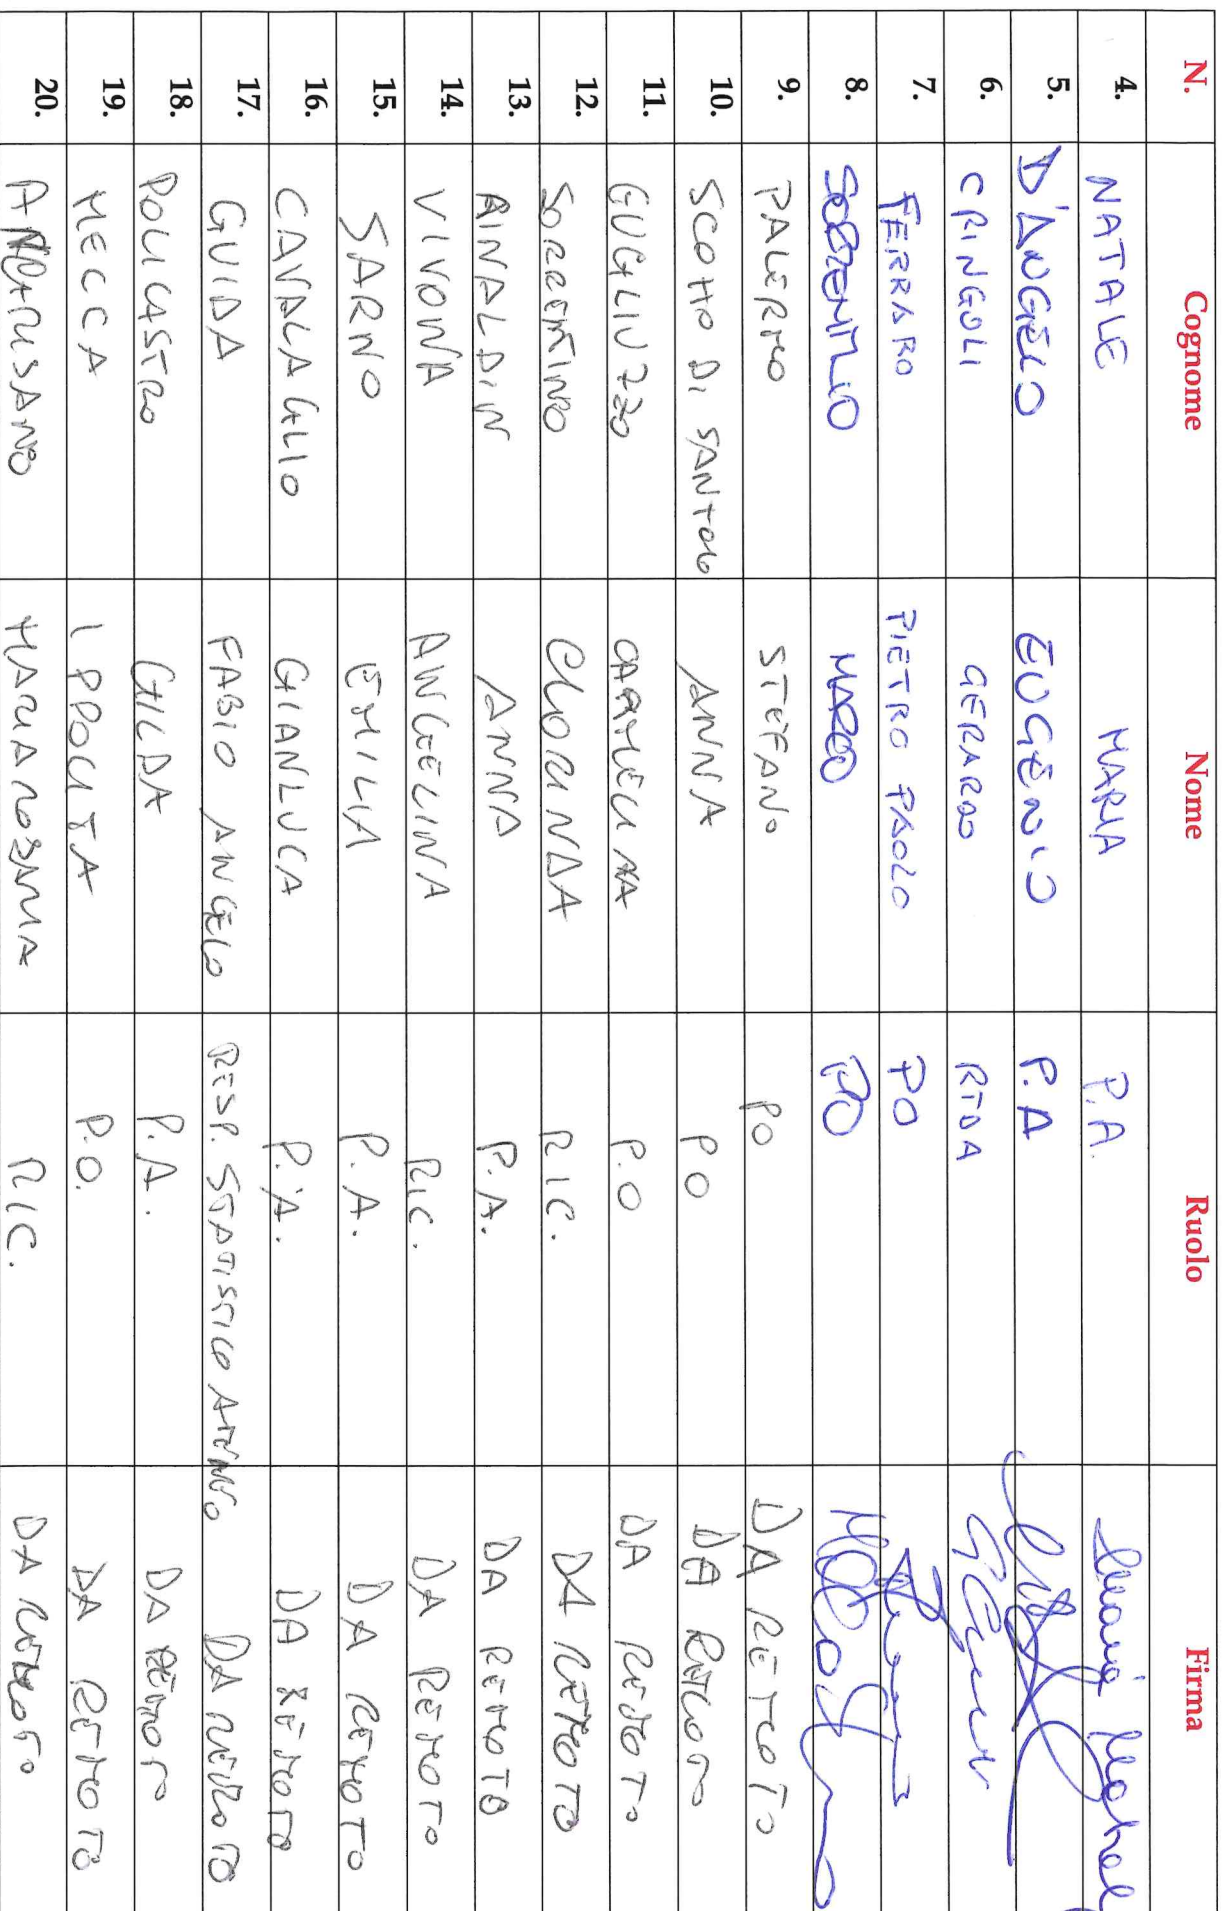 N. Cognome Nome Ruolo Firma
4. NATALE MARIA P.A. Maria Natale
5. D'ANGELO EUGENIO P.A
6. CRINGOLI GERARDO RTDA
7. FERRARO PIETRO PAOLO PO
8. SORRENTINO MARCO PO
9. PALERMO STEFANO PO DA REMOTO
10. SCOTTO DI SANTOLO ANNA PO DA REMOTO
11. GUGLIUZZO CARMELINA P.O DA REMOTO
12. SORRENTINO CLORINDA RIC. DA REMOTO
13. RINALDIN ANNA P.A. DA REMOTO
14. VIVONA ANGELINA RIC. DA REMOTO
15. SARNO EMILIA P.A. DA REMOTO
16. CAVALAGLIO GIANLUCA P.A. DA REMOTO
17. GUIDA FABIO ANGELO RESP. STATISTICO ATENEO DA REMOTO
18. POLICASTRO GILDA P.A. DA REMOTO
19. MECCA IPPOLITA P.O. DA REMOTO
20. MARIAROSARIA RIC. DA REMOTO